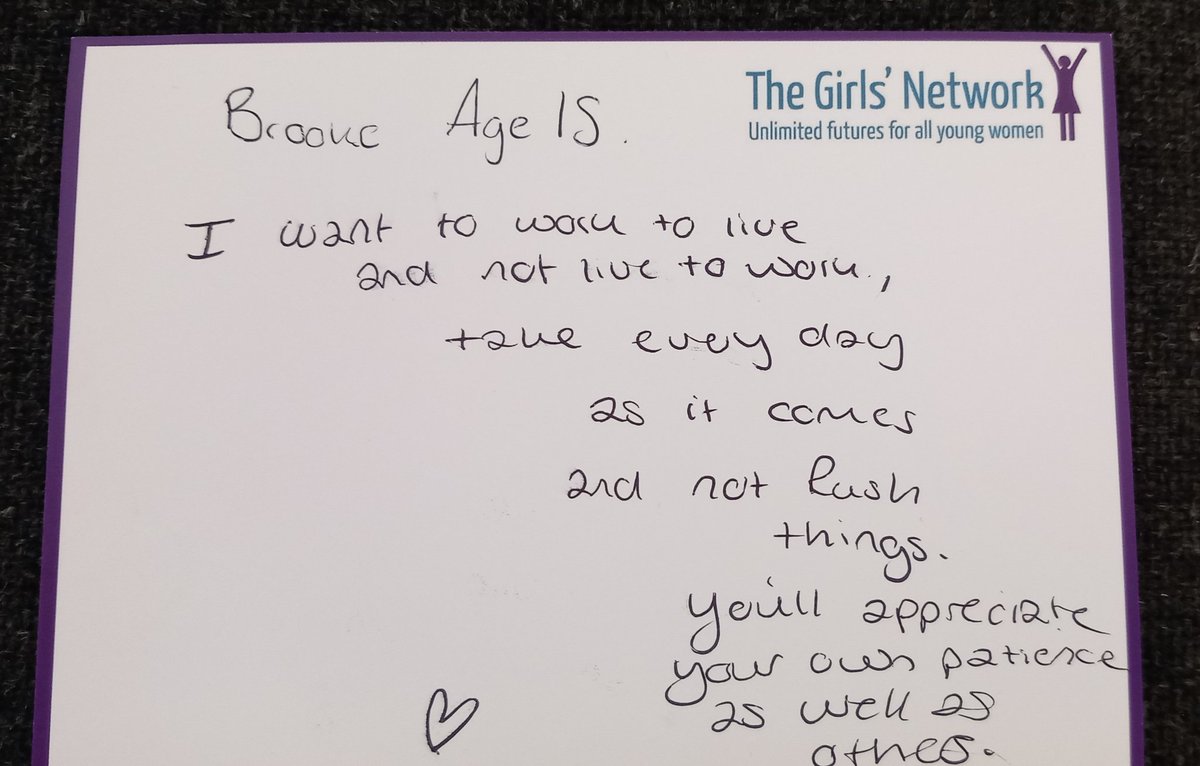 The Girls' Network
Unlimited futures for all young women
Brooke Age 15.
I want to work to live
and not live to work,
take every day
as it comes
and not Rush
things.
you'll appreciate
your own patience
as well as
others.